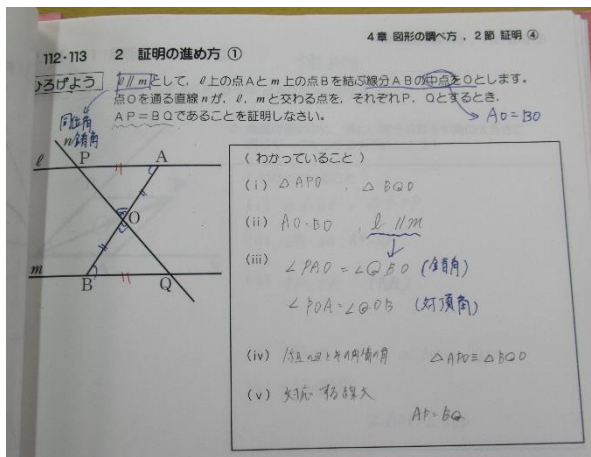 4章 図形の調べ方，2節 証明 ④
112・113 2 証明の進め方 ①
ひろげよう
ℓ//mとして，ℓ上の点Aとm上の点Bを結ぶ線分ABの中点をOとします。
点Oを通る直線nが，ℓ，mと交わる点を，それぞれP，Qとするとき，
AP=BQであることを証明しなさい。
AO=BO
同位角
錯角
n
ℓ P A
O
m B Q
(わかっていること)
(i) △APO , △BQO
(ii) AO=BO , ℓ//m
(iii) ∠PAO=∠QBO (錯角)
∠POA=∠QOB (対頂角)
(iv) 1組の辺とその両端の角 △APO≡△BQO
(v) 対応する線分
AP=BQ